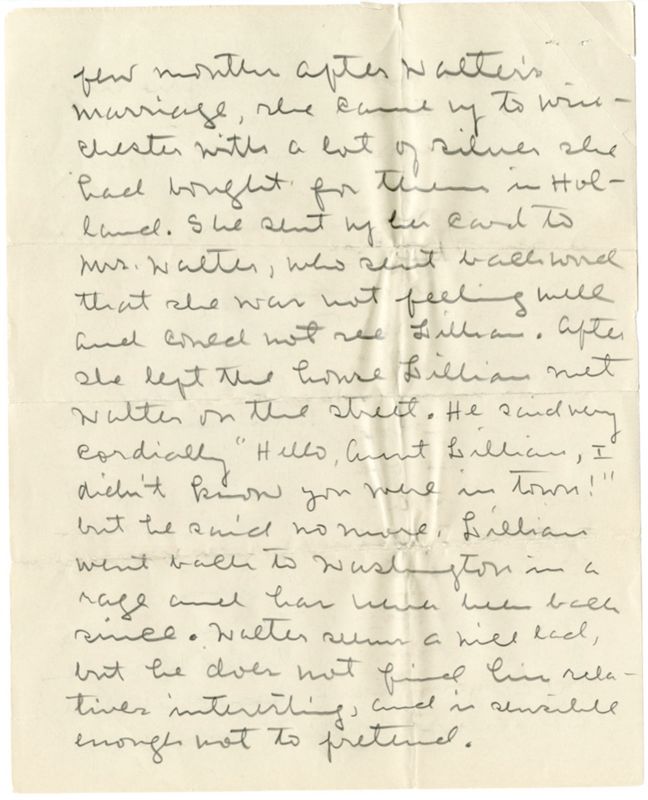 few months after Walter's
marriage, she came up to Win-
chester with a lot of silver she
had bought for them in Hol-
land. She sent up her card to
Mrs. Walter, who sent back word
that she was not feeling well
and could not see Lillian. After
she left the house Lillian met
Walter on the street. He said very
cordially "Hello, Aunt Lillian, I
didn't know you were in town!"
but he said no more. Lillian
went back to Washington in a
rage and has never been back
since. Walter seems a nice lad,
but he does not find his rela-
tives interesting, and is sensible
enough not to pretend.